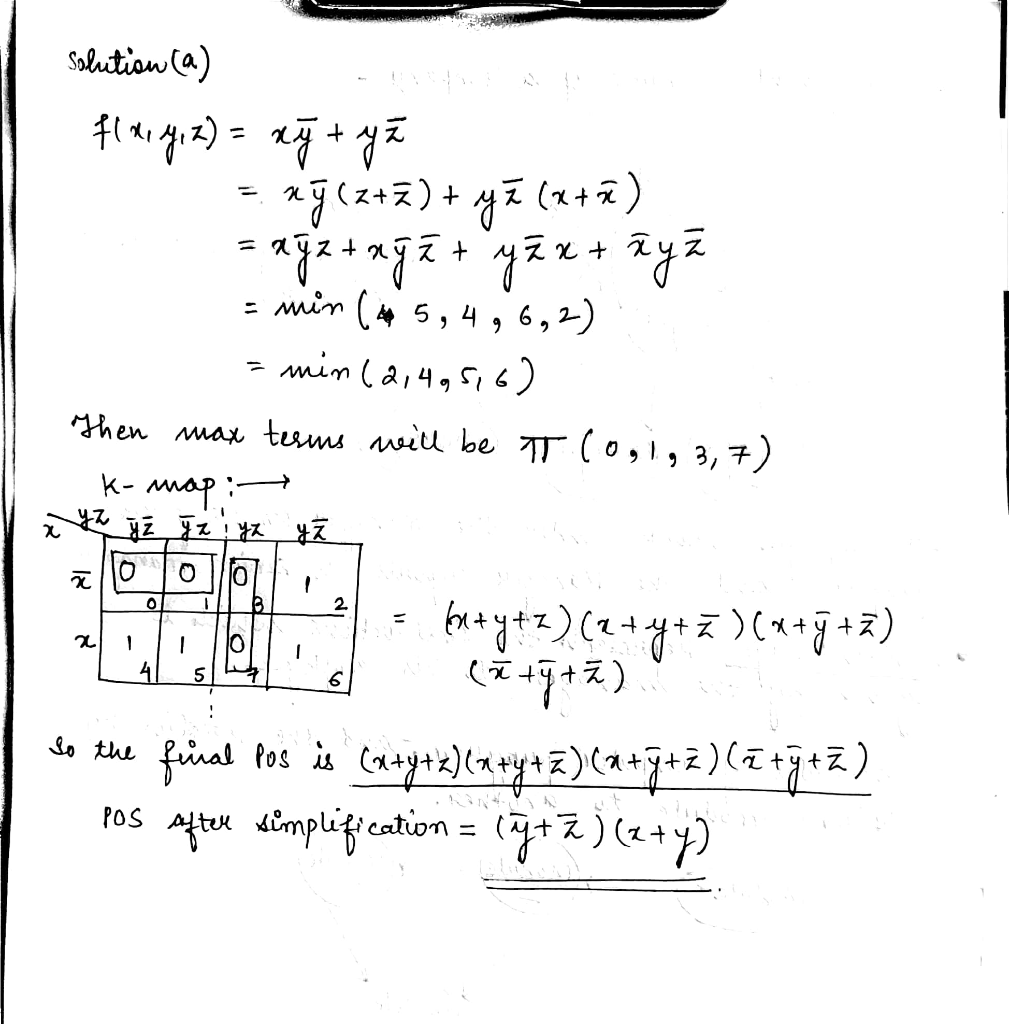 Solution (a)
f(x,y,z) = xȳ + yz̄
= xȳ(z+z̄) + yz̄ (x+x̄)
= xȳz + xȳz̄ + yz̄x + x̄yz̄
= min ( 5, 4, 6, 2)
= min (2,4,5,6)
Then max terms will be π (0,1,3,7)
K-map :→
x yz ȳz̄ ȳz yz yz̄
x̄ 0 0 0 1
0 1 3 2
x 1 1 0 1
4 5 7 6
= (x+y+z)(x+y+z̄)(x+ȳ+z̄)
(x̄+ȳ+z̄)
So the final POS is (x+y+z)(x+y+z̄)(x+ȳ+z̄)(x̄+ȳ+z̄)
POS after simplification = (ȳ+z̄)(x+y)